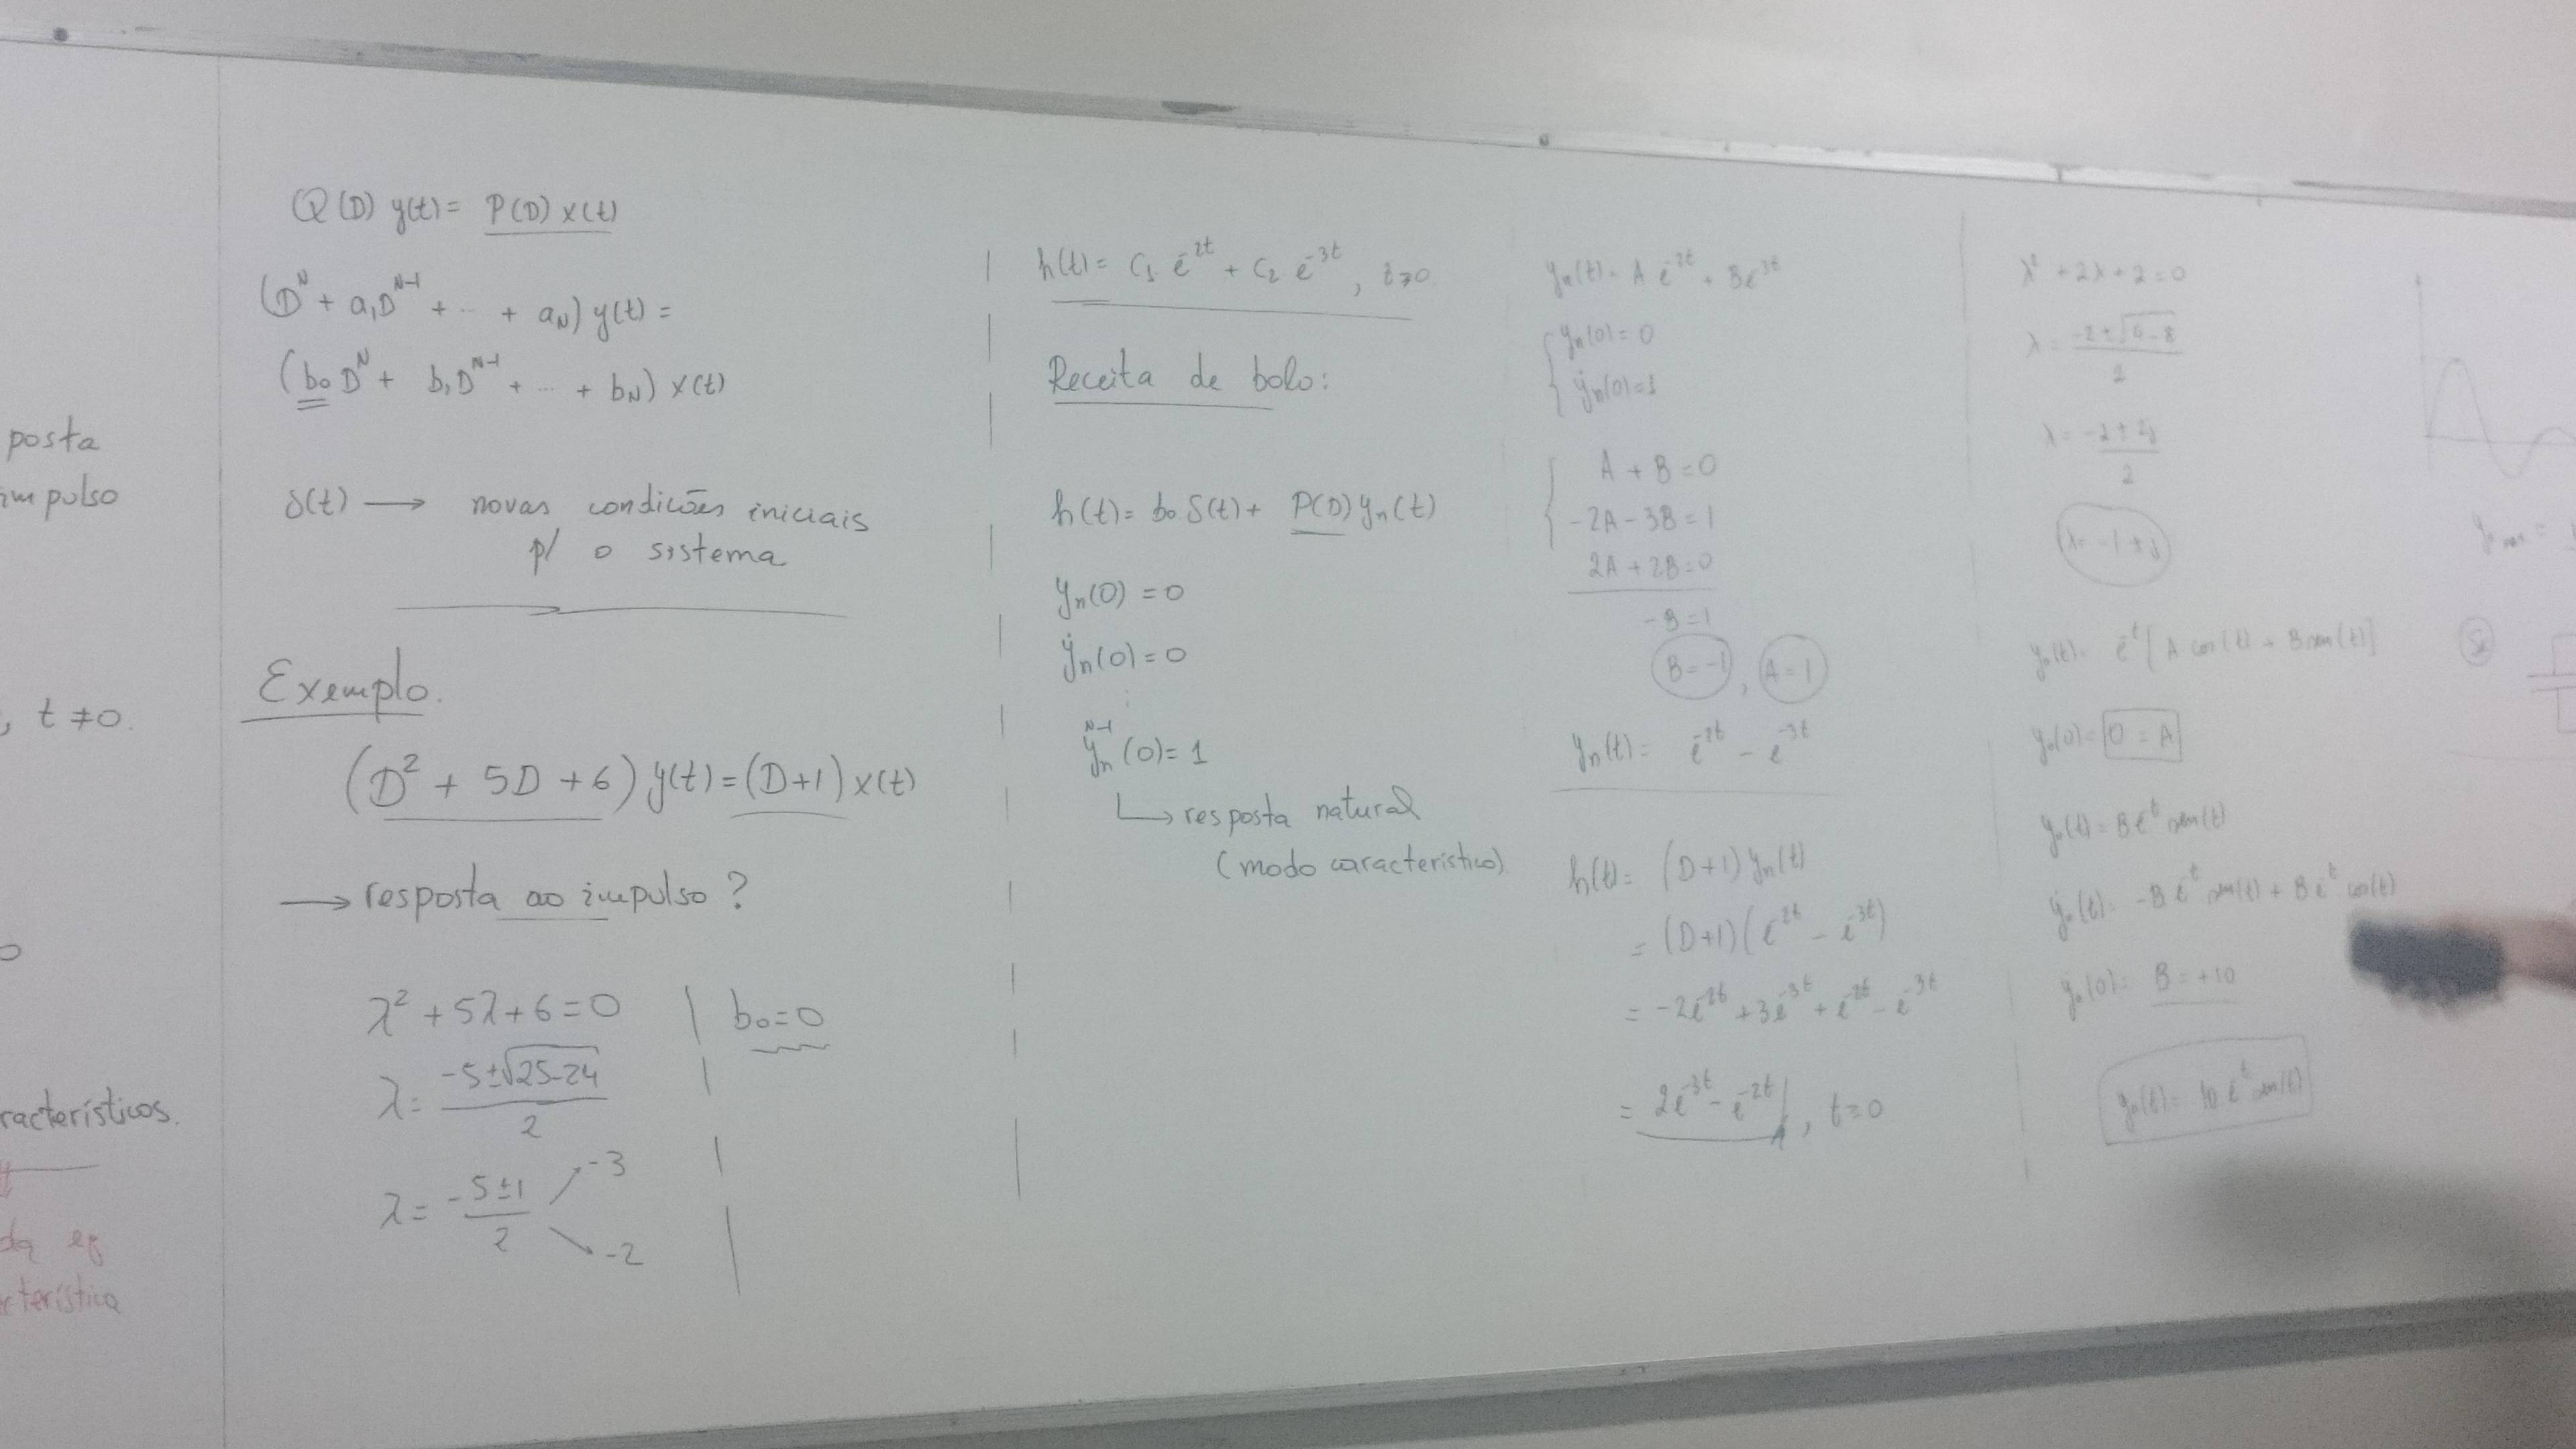 posta
impulso
, t ≠ 0.
racterísticos.
da eq
cterística
Q(D) y(t) = P(D) x(t)
(D^N + a₁D^{N-1} + ... + a_N) y(t) =
(b₀ D^N + b₁D^{N-1} + ... + b_N) x(t)
δ(t) → novas condições iniciais
p/ o sistema
Exemplo.
(D² + 5D + 6) y(t) = (D+1) x(t)
→ resposta ao impulso?
λ² + 5λ + 6 = 0
λ = (-5 ± √25-24)/2
λ = (-5 ± 1)/2
-3
-2
b₀ = 0
h(t) = C₁ e^{-2t} + C₂ e^{-3t}, t≥0
Receita de bolo:
h(t) = b₀ δ(t) + P(D) yₙ(t)
yₙ(0) = 0
ẏₙ(0) = 0
⋮
yₙ^{N-1}(0) = 1
↳ resposta natural
(modo característico)
yₙ(t) = A e^{-2t} + B e^{-3t}
yₙ(0) = 0
ẏₙ(0) = 1
A + B = 0
-2A - 3B = 1
2A + 2B = 0
-B = 1
B = -1, A = 1
yₙ(t) = e^{-2t} - e^{-3t}
h(t) = (D+1) yₙ(t)
= (D+1)(e^{-2t} - e^{-3t})
= -2e^{-2t} + 3e^{-3t} + e^{-2t} - e^{-3t}
= 2e^{-3t} - e^{-2t}, t≥0
λ² + 2λ + 2 = 0
λ = (-2 ± √4-8)/2
λ = (-2 ± 2j)/2
λ = -1 ± j
y₀(t) = e^{-t} [A cos(t) + B sen(t)]
y₀(0) = 0 = A
y₀(t) = B e^{-t} sen(t)
ẏ₀(t) = -B e^{-t} sen(t) + B e^{-t} cos(t)
ẏ₀(0) = B = +10
y₀(t) = 10 e^{-t} sen(t)